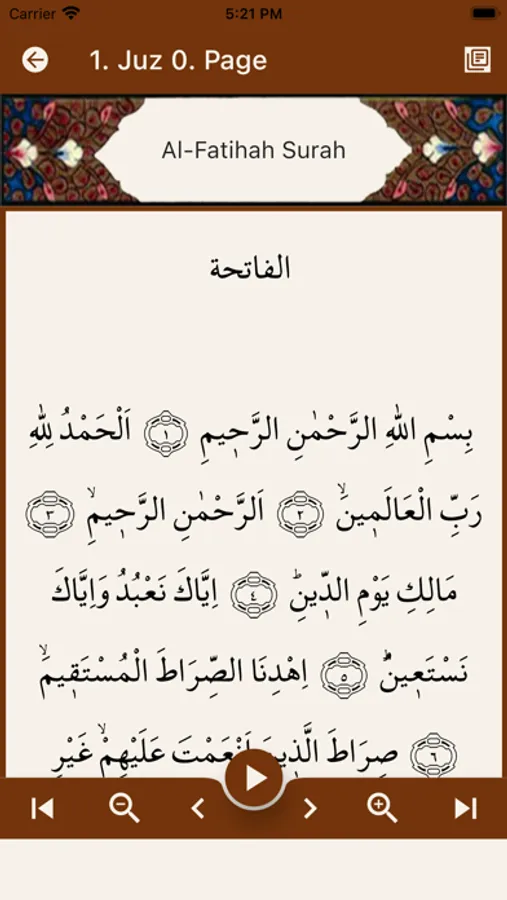 Carrier 5:21 PM
1. Juz 0. Page
Al-Fatihah Surah
الفاتحة
بِسْمِ اللّٰهِ الرَّحْمٰنِ الرَّح۪يمِ ﴿١﴾ اَلْحَمْدُ لِلّٰهِ
رَبِّ الْعَالَم۪ينَۙ ﴿٢﴾ اَلرَّحْمٰنِ الرَّح۪يمِۙ ﴿٣﴾
مَالِكِ يَوْمِ الدّ۪ينِۜ ﴿٤﴾ اِيَّاكَ نَعْبُدُ وَاِيَّاكَ
نَسْتَع۪ينُۜ ﴿٥﴾ اِهْدِنَا الصِّرَاطَ الْمُسْتَق۪يمَۙ
﴿٦﴾ صِرَاطَ الَّذ۪ينَ اَنْعَمْتَ عَلَيْهِمْۙ غَيْرِ